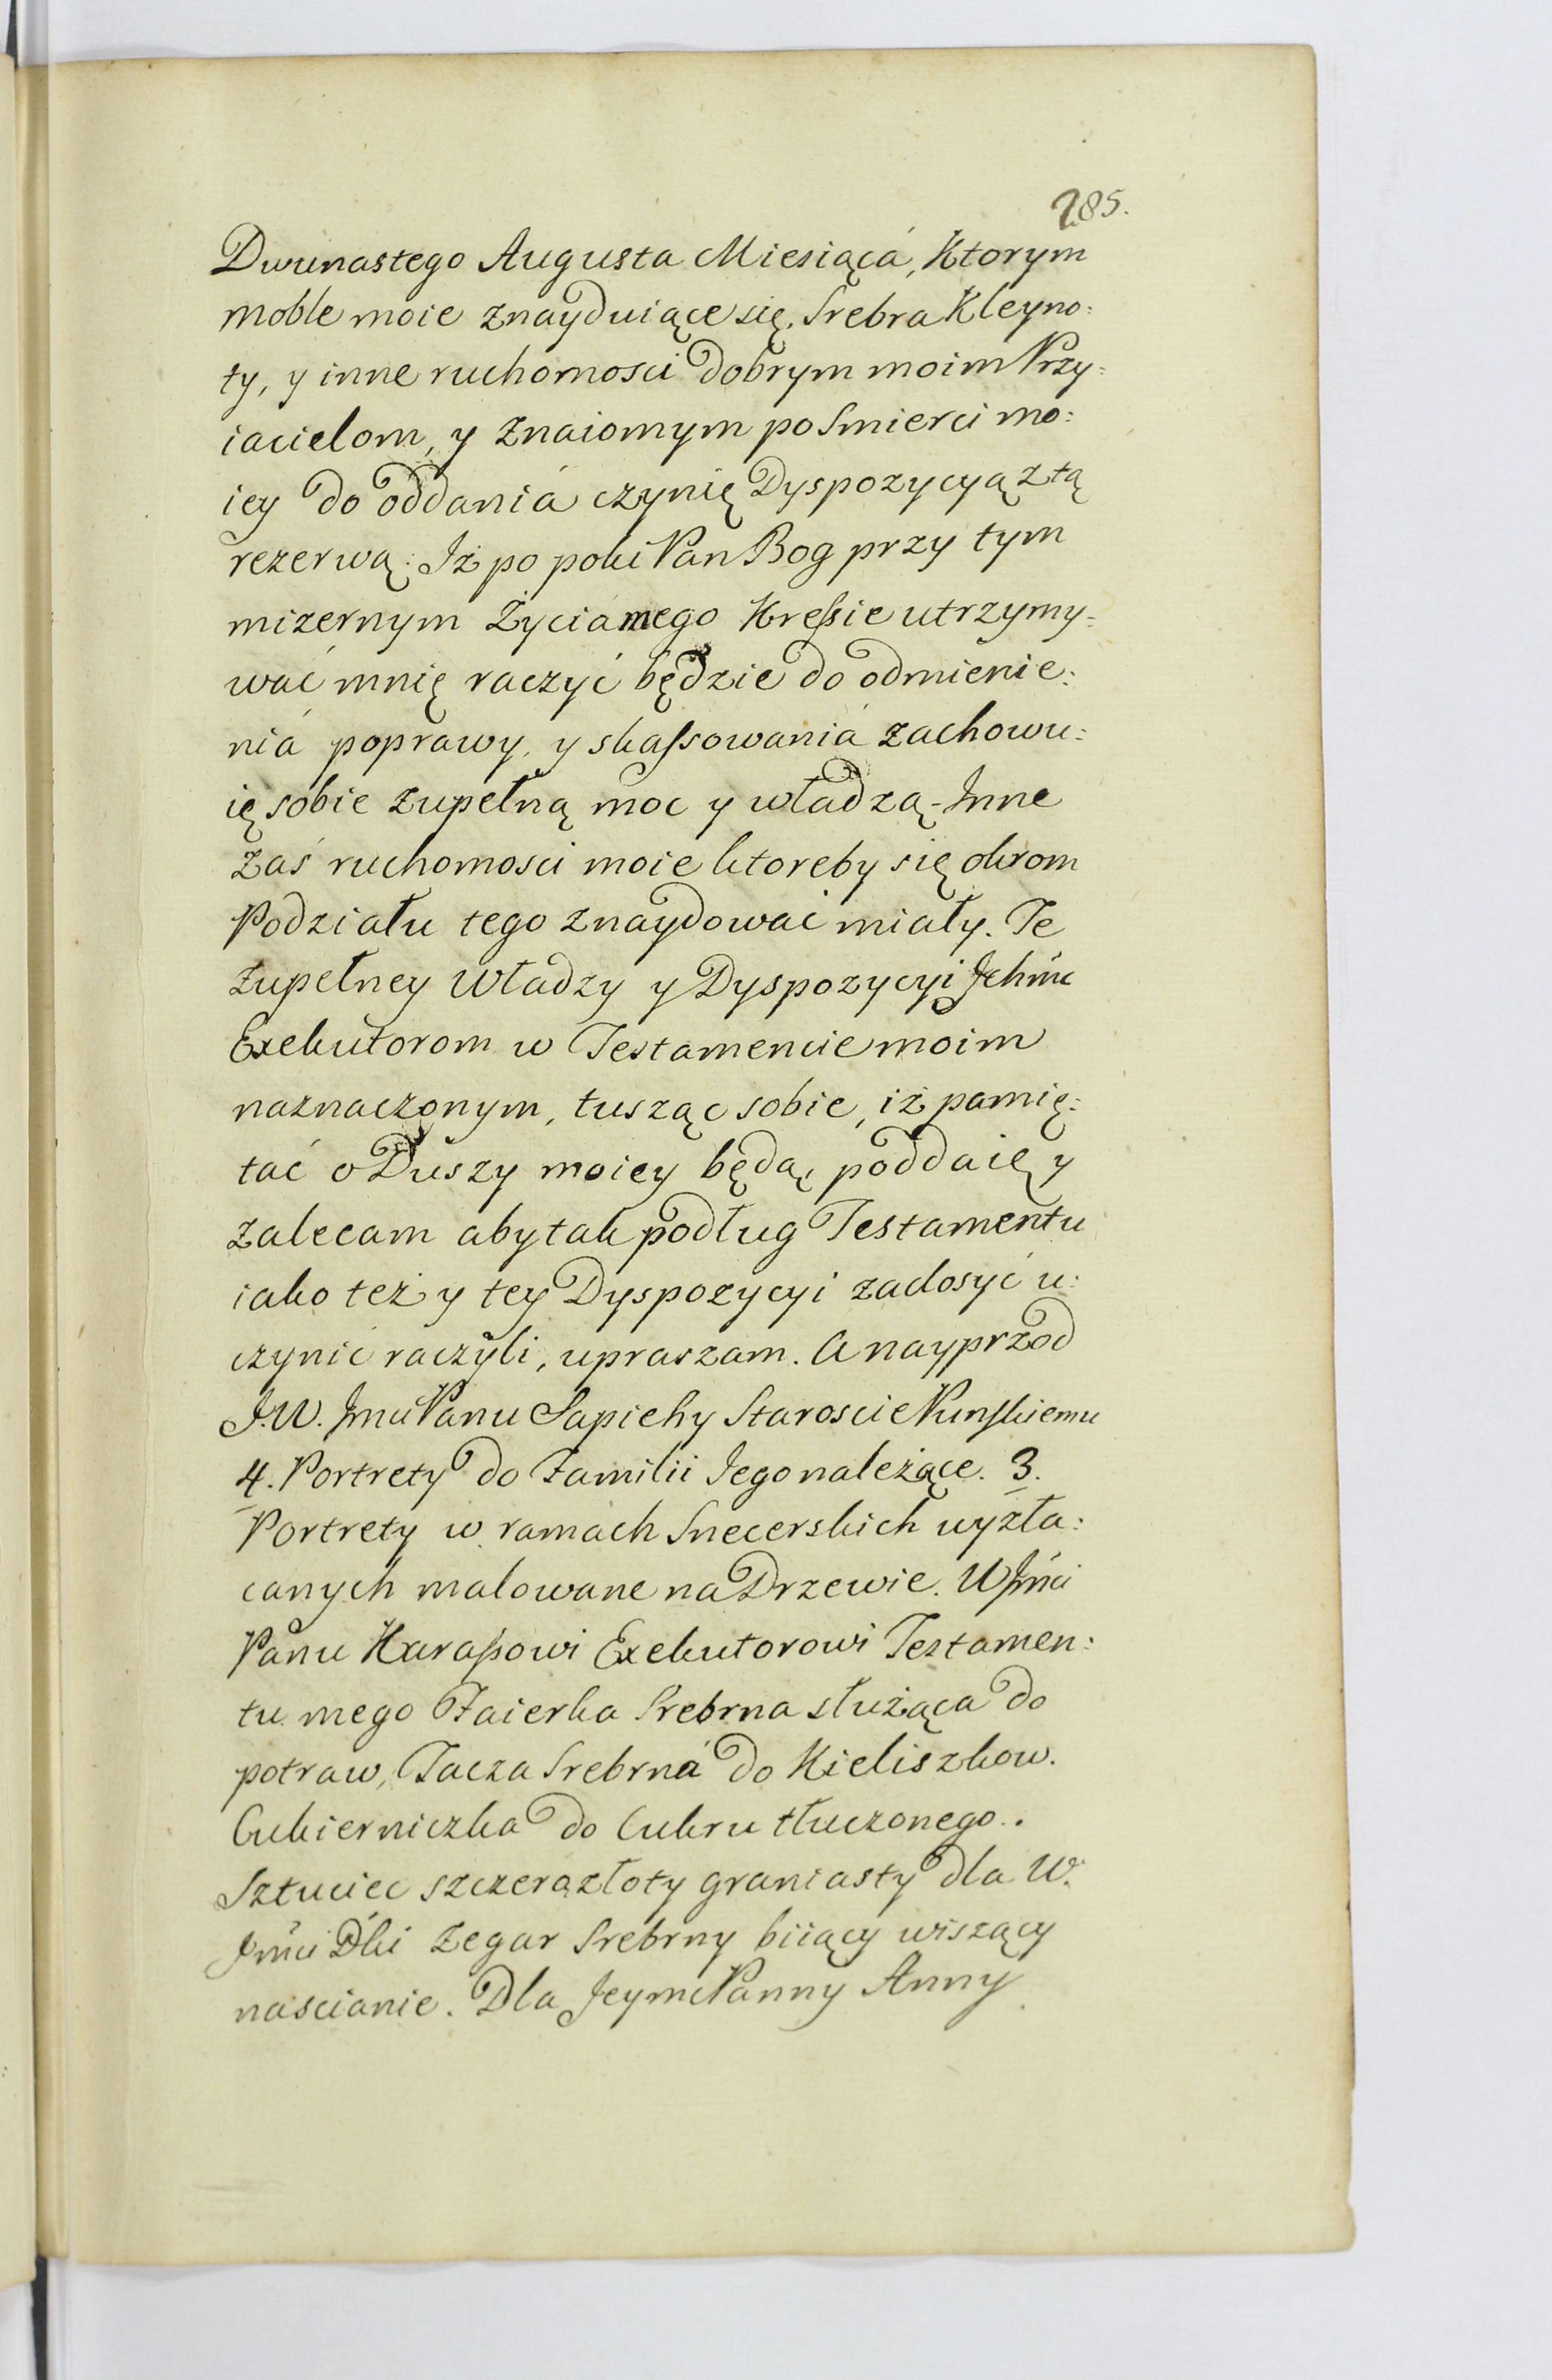 285.
Dwunastego Augusta Miesiąca, Ktorym
moble moie znayduiące się, Srebra Kleyno:
ty, y inne ruchomosci dobrym moim Przy:
iacielom, y znaiomym po Smierci mo:
iey do oddania czynię Dyspozycyą z tą
rezerwą: Iż po poki Pan Bog przy tym
mizernym Życia mego Kreſsie utrzymy:
wać mnię raczyć będzie do odmienie:
nia poprawy, y skaſsowania zachowu:
ię sobie zupełną moc y władzą - Inne
zaś ruchomosci moie ktoreby się okrom
Podziału tego znaydować miały. Te
zupełney Władzy y Dyspozycyi Ichmć
Exekutorom w Testamencie moim
naznaczonym, tusząc sobie, iż pamię:
tać o Duszy moiey będą, poddaię y
zalecam aby tak podług Testamentu
iako też y tey Dyspozycyi zadosyć u:
czynić raczyli, upraszam. A nayprzod
J.W. Jmci Panu Sapiehy Staroscie Punſkiemu
4. Portrety do Familii Jego należące. 3.
Portrety w ramach Snecerskich wyzła:
canych malowane na Drzewie. W Jmći
Panu Karaſsowi Exekutorowi Testamen:
tu mego Faierka Srebrna służąca do
potraw, Tacza Srebrna do Kieliszkow.
Cukierniczka do Cukru tłuczonego.
Sztuciec szczerozłoty graniasty dla W.
Jmći Zegar Srebrny biiący wiszący
na scianie. Dla Jeymć Panny Anny